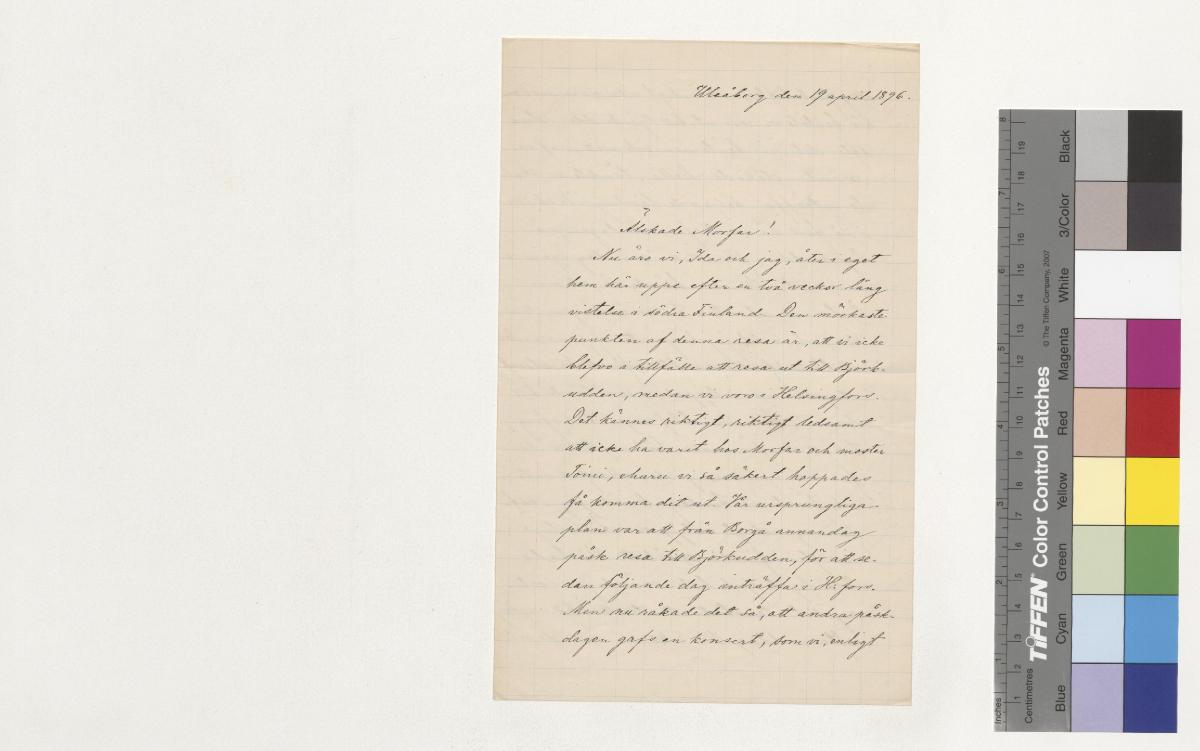 Uleåborg den 19 april 1896.
Älskade Morfar!
Nu äro vi, Ida och jag, åter i eget
hem här uppe efter en två veckor lång
vistelse i södra Finland. Den mörkaste
punkten af denna resa är, att vi icke
blefvo i tillfälle att resa ut till Björk-
udden, medan vi voro i Helsingfors.
Det kännes riktigt, riktigt ledsamt
att icke ha varit hos Morfar och moster
Toini, ehuru vi så säkert hoppades
få komma dit ut. Vår ursprungliga
plan var att från Borgå annandag
påsk resa till Björkudden, för att se-
dan följande dag inträffa i H:fors.
Men nu råkade det så, att andra påsk-
dagen gafs en konsert, som vi, enligt
Inches
1
2
3
4
5
6
7
8
Centimetres
1 2 3 4 5 6 7 8 9 10 11 12 13 14 15 16 17 18 19
TIFFEN Color Control Patches
© The Tiffen Company, 2007
Blue
Cyan
Green
Yellow
Red
Magenta
White
3/Color
Black